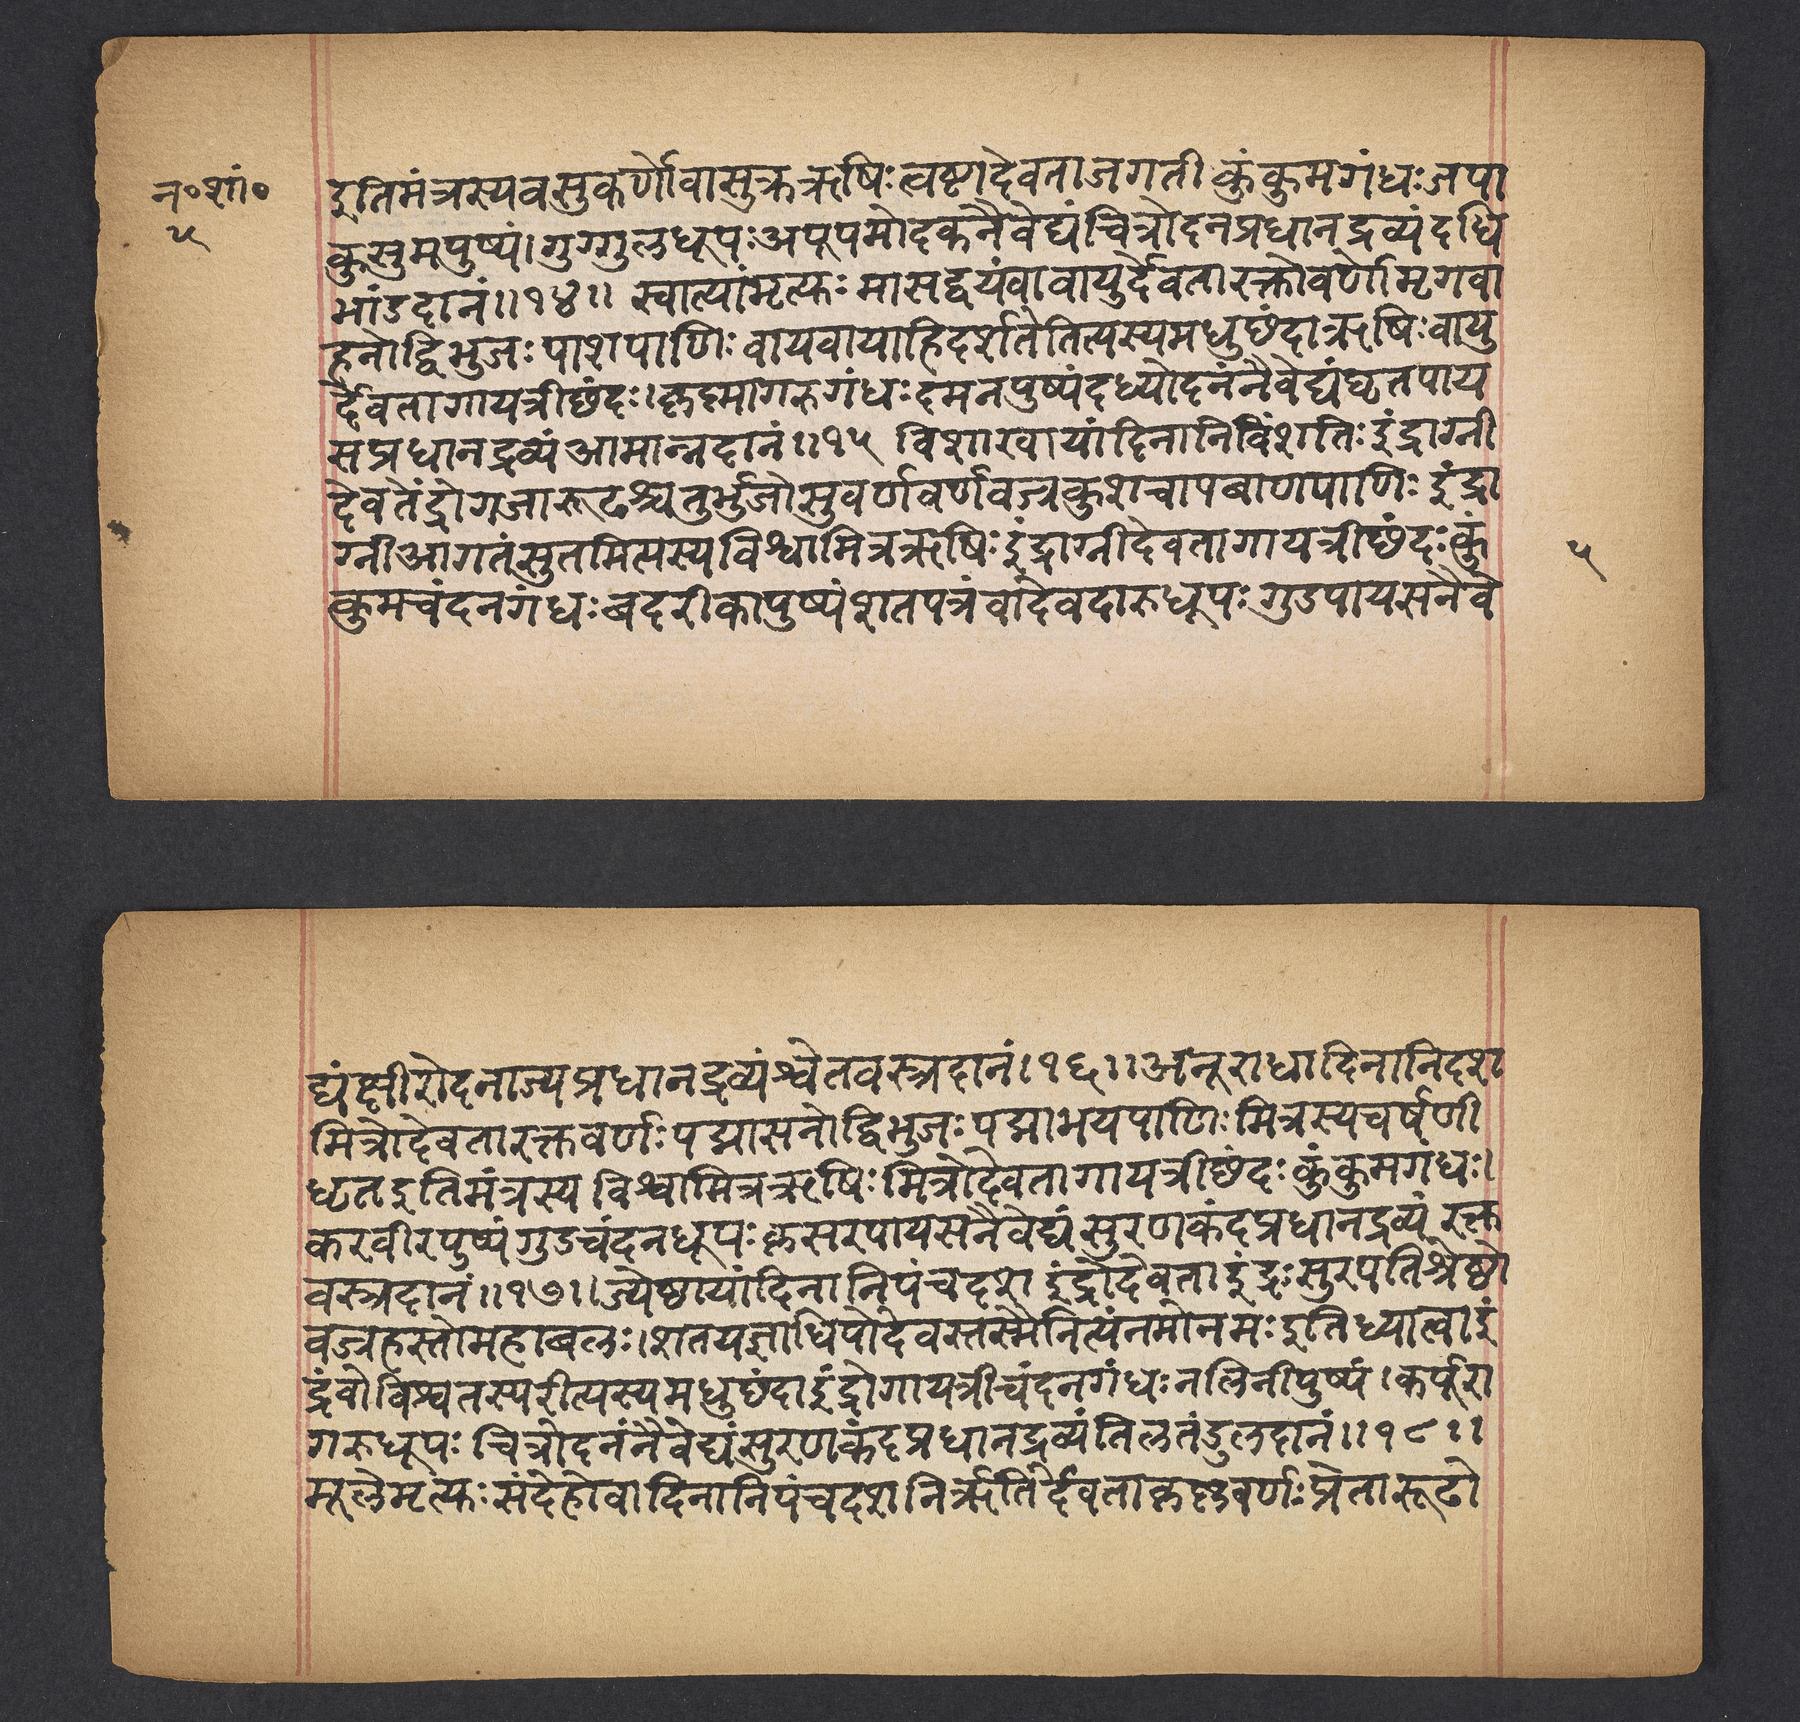 न०शां०
५
इतिमंत्रस्यवसुकर्णोवासुक्रऋषिःत्वष्टादेवताजगती कुंकुमगंधःजपा
कुसुमपुष्पं।गुग्गुलधूपःअपूपमोदकनैवेद्यंचित्रोदनप्रधानद्रव्यंदधि
भांडदानं॥१४॥ स्वात्यांमृत्युः मासद्वयंवावायुर्देवतारक्तोवर्णोमृगवा
हनोद्विभुजः पाशपाणिः वायवायाहिदर्शतेतित्यस्यमधुछंदाऋषिःवायु
र्देवतागायत्रीछंदः।कृष्णागरुगंधःदमनपुष्पंदध्योदनंनैवेद्यंघृतपाय
सप्रधानद्रव्यंआमान्नदानं॥१५ विशाखायांदिनानिविंशतिःइंद्राग्नी
देवतेंद्रोगजारूढश्चतुर्भुजोसुवर्णवर्णवज्रकुशचापबाणपाणिः इंद्रा
ग्नीआगतंसुतमित्सस्यविश्वामित्रऋषिःइंद्राग्नीदेवतागायत्रीछंदःकुं
कुमचंदनगंधःबदरीकापुष्पंशतपत्रंवादेवदारुधूपः गुडपायसनैवे
५
द्यंक्षीरोदनाज्यप्रधानद्रव्यंश्वेतवस्त्रदानं।१६॥अनूराधादिनानिदश
मित्रोदेवतारक्तवर्णःपद्मासनोद्विभुजःपद्माभयपाणिःमित्रस्यचर्षणी
धृतइतिमंत्रस्य विश्वामित्रऋषिःमित्रोदेवतागायत्रीछंदःकुंकुमगंधः।
करवीरपुष्पंगुडचंदनधूपःकृसरपायसनैवेद्यंसुरणकंदप्रधानद्रव्यं रक्त
वस्त्रदानं॥१७॥ज्येष्ठायांदिनानिपंचदश इंद्रोदेवता इंद्रःसुरपतिश्रेष्ठो
वज्रहस्तोमहाबलः।शतयज्ञाधिपोदेवस्तस्मैनित्यंनमोनमःइतिध्यात्वाइं
द्रंवोविश्वतस्परीत्यस्यमधुछंदाइंद्रोगायत्रीचंदनगंधःनलिनीपुष्पं।कर्पूरा
गरुधूपः चित्रोदनंनैवेद्यंसुरणकंदप्रधानद्रव्यंतिलतंडुलदानं॥१८॥
मूलेमृत्युःसंदेहोवादिनानिपंचदशनिर्ऋतिर्देवताकृष्णवर्णःप्रेतारूढो